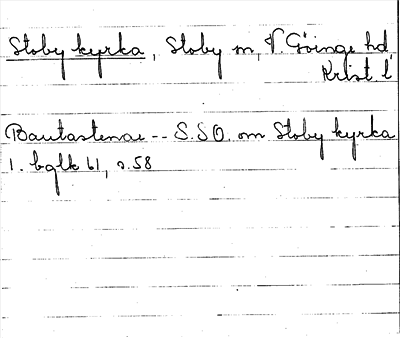 Stoby kyrka, Stoby sn, V. Göinge hd
Krist. l
Bautastenar -- S.SO. om Stoby kyrka
1. bglk 61, s. 58